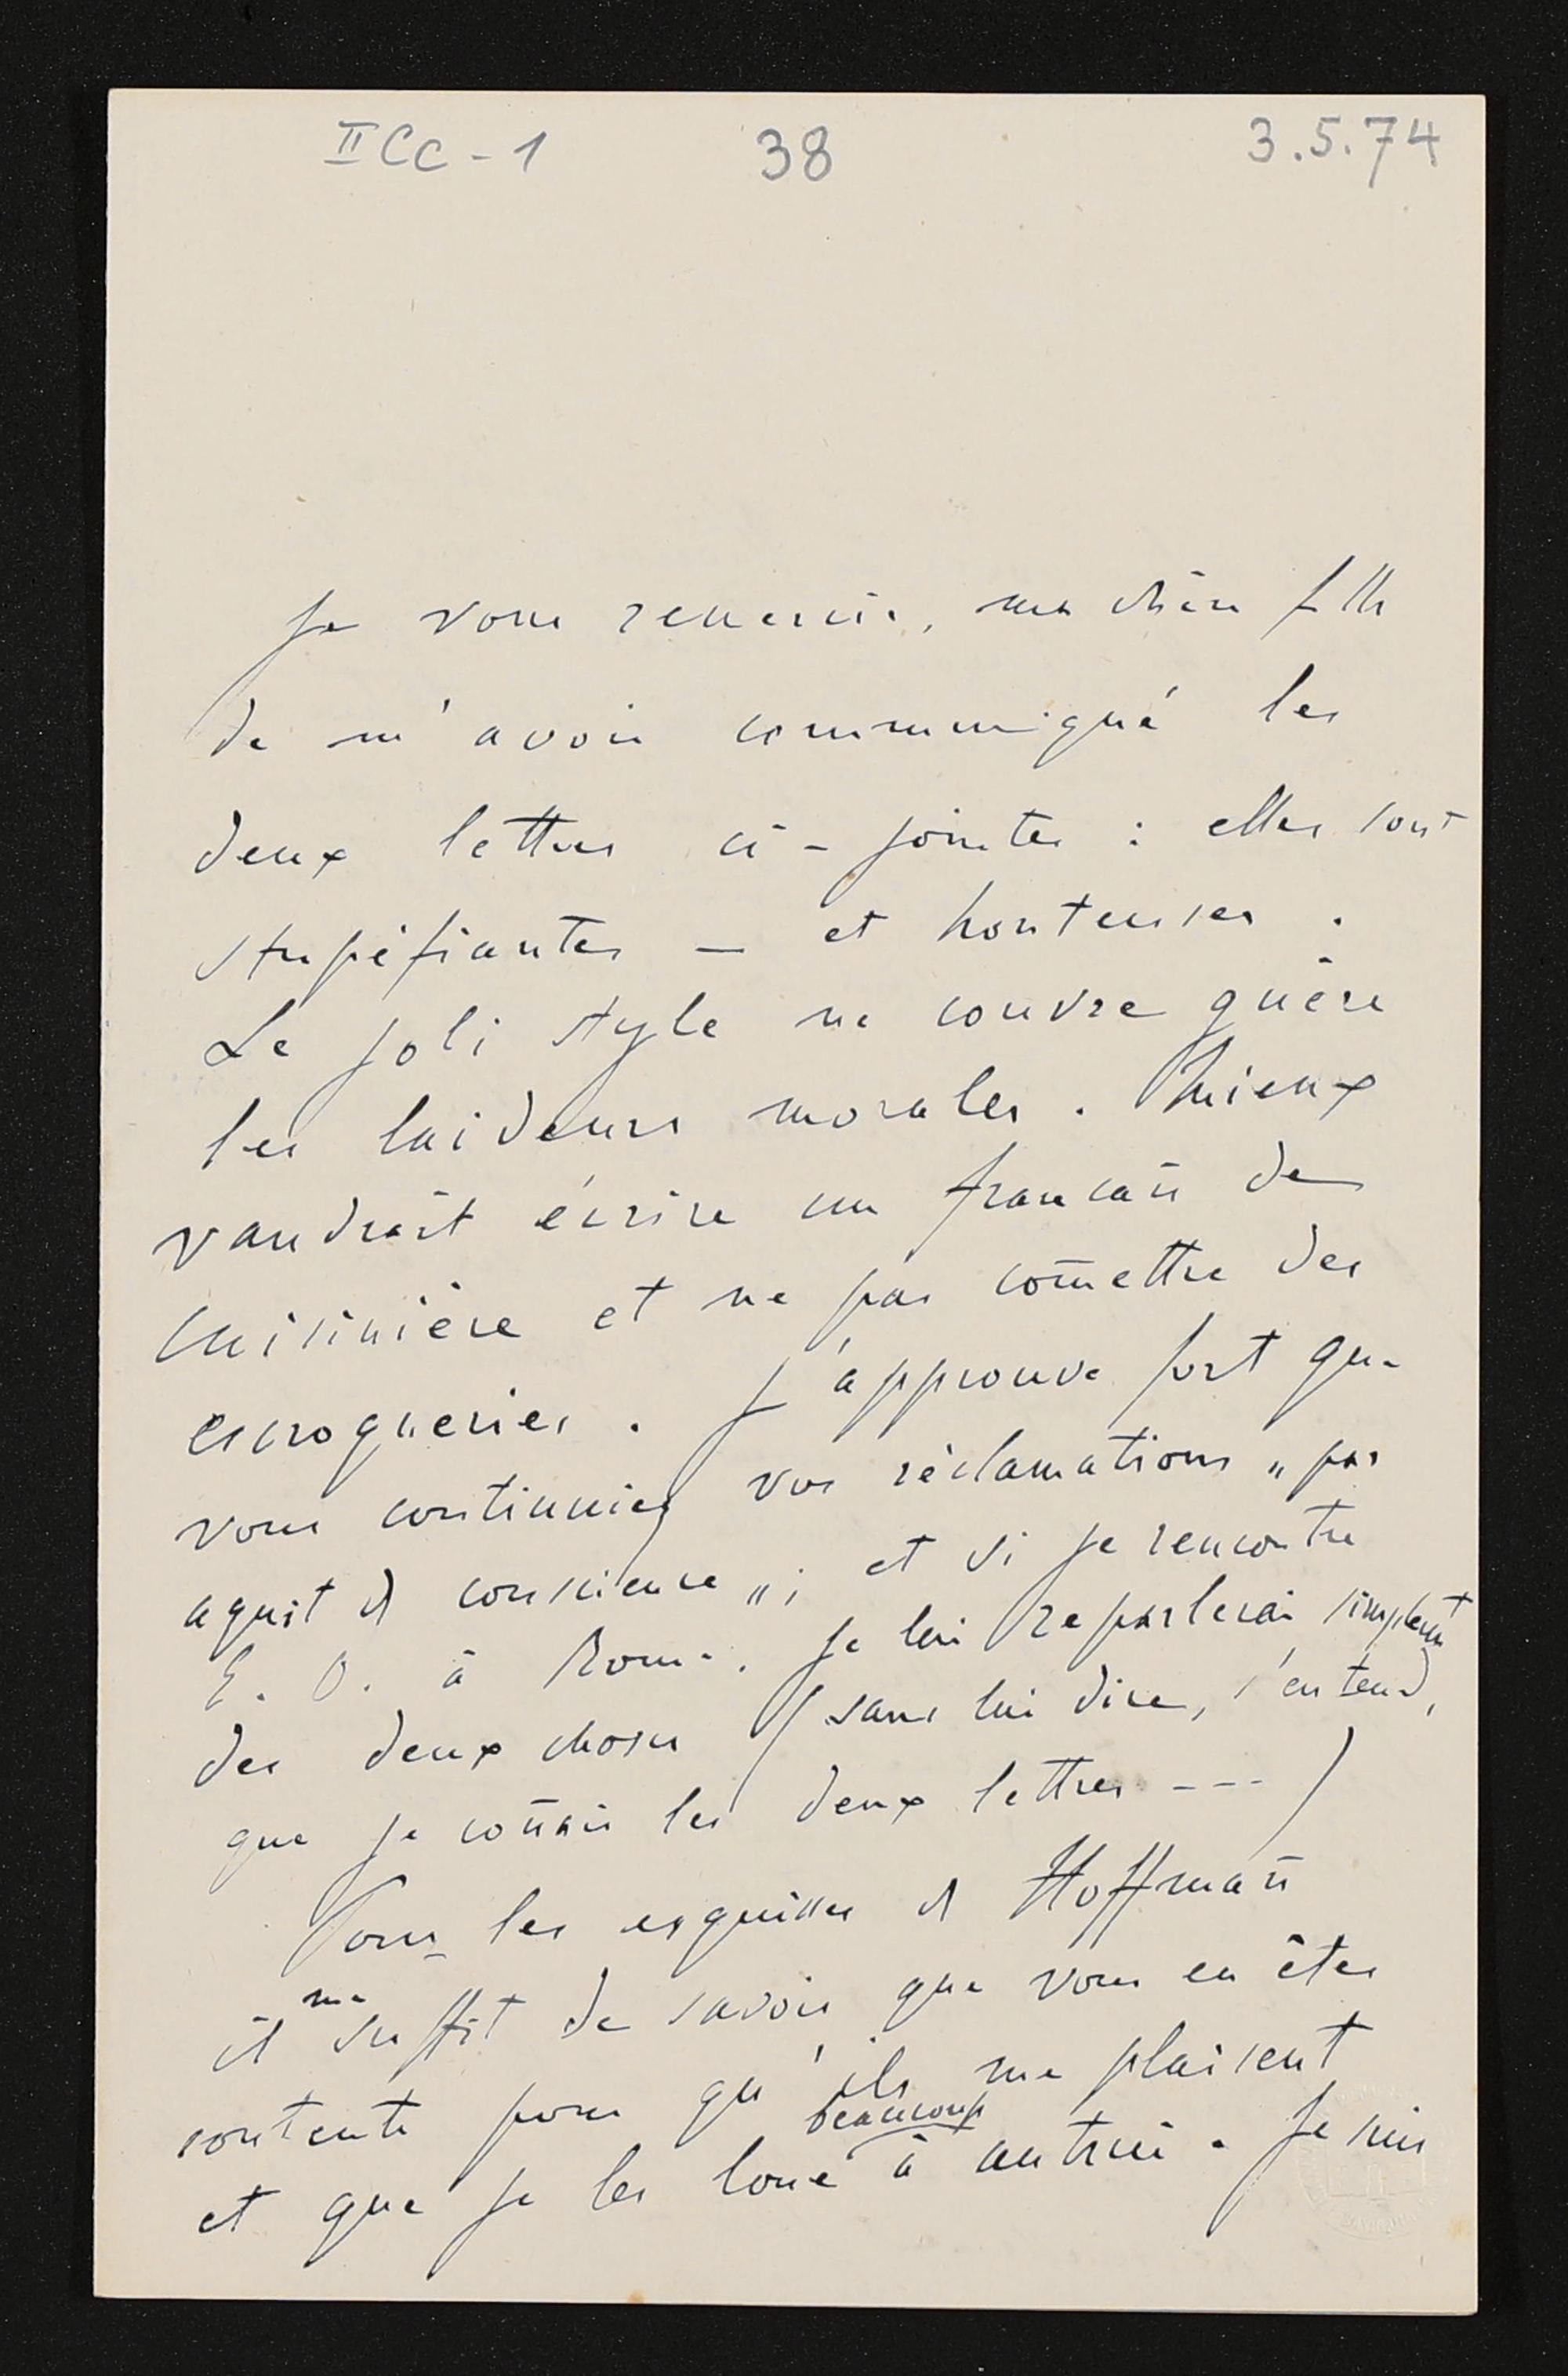 II Cc - 1 38 3.5.74
Je vous remercie, ma chère fille
de m'avoir communiqué les
deux lettres ci-jointes : elles sont
stupéfiantes — et honteuses .
Le joli style ne couvre guère
les laideurs morales . Mieux
vaudrait écrire un francais de
cuisinière et ne pas com̄ettre des
escroqueries . J'approuve fort que
vous continuiez vos réclamations „ par
aquit de conscience „ ; et si je rencontre
E. O. à Rome . je lui reparlerai simplemt
des deux choses ( sans lui dire, s'entend,
que je con̄ais les deux lettres --- )
Pour les esquisses de Hoffman̄
il me suffit de savoir que vous en êtes
contente pour qu'ils me plaisent
et que je les loue beaucoup à autrui . Je suis